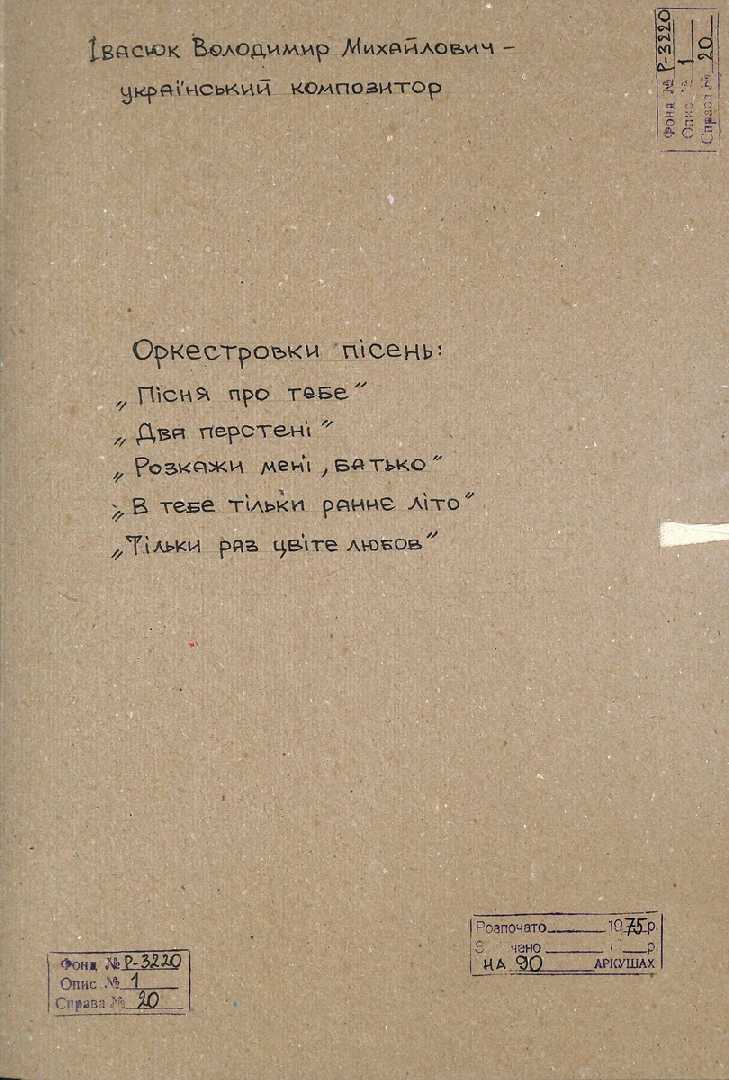 Івасюк Володимир Михайлович -
український композитор
Фонд № Р-3220
Опис № 1
Справа № 20
Оркестровки пісень:
„Пісня про тебе"
„Два перстені"
„Розкажи мені, батько"
„В тебе тільки раннє літо"
„Тільки раз цвіте любов"
Розпочато 1975 р.
р
НА 90 АРКУШАХ
Фонд № Р-3220
Опис № 1
Справа № 20